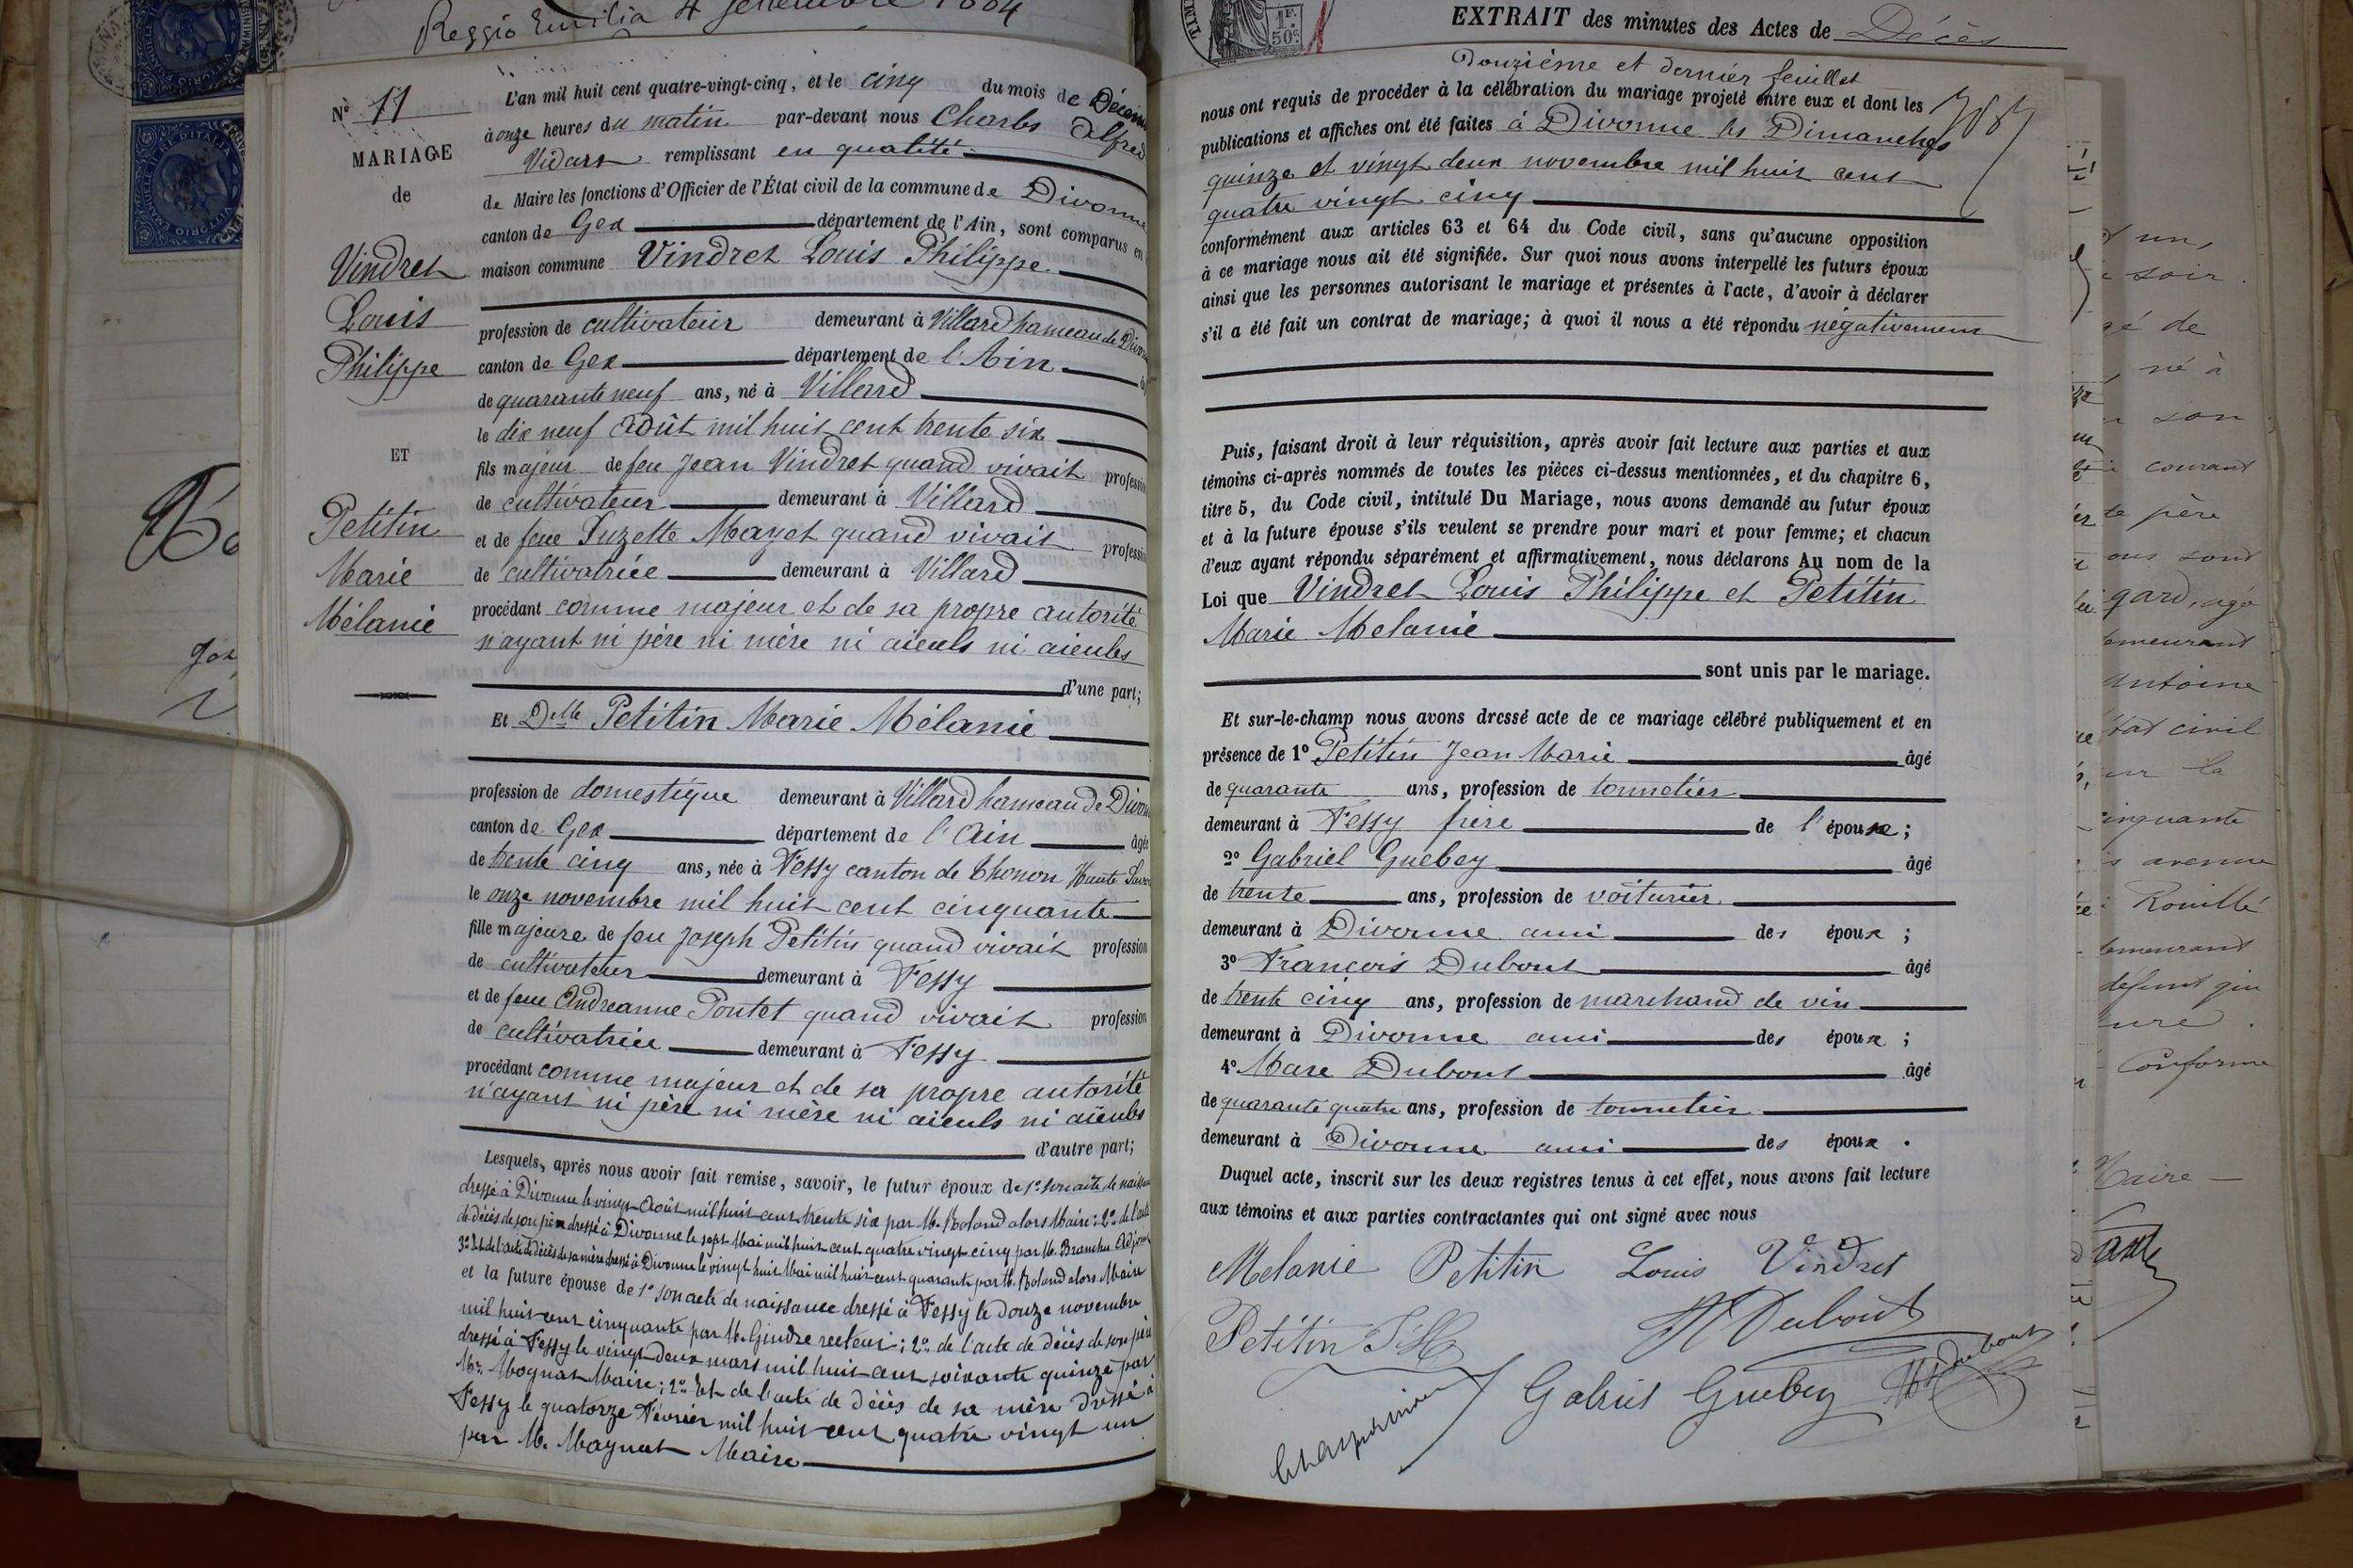 Reggio Emilia 4 settembre 1884
Nº 11
MARIAGE
de
Vindret
Louis
Philippe
ET
Petitin
Marie
Mélanie
L'an mil huit cent quatre-vingt-cinq, et le cinq du mois de Décem
à onze heures du matin par-devant nous Charles Alfred
Vidart remplissant en qualité
de Maire les fonctions d'Officier de l'État civil de la commune de Divonne
canton de Gex département de l'Ain, sont comparus en
maison commune Vindret Louis Philippe
profession de cultivateur demeurant à Villard hameau de Divonne
canton de Gex département de l'Ain
de quarante neuf ans, né à Villard
le dix neuf Août mil huit cent trente six
fils majeur de feu Jean Vindret quand vivait profession
de cultivateur demeurant à Villard
et de feue Suzette Mayet quand vivait profession
de cultivatrice demeurant à Villard
procédant comme majeur et de sa propre autorité
n'ayant ni père ni mère ni aieuls ni aieules
d'une part;
Et Delle Petitin Marie Mélanie
profession de domestique demeurant à Villard hameau de Divonne
canton de Gex département de l'Ain âgée
de trente cinq ans, née à Fessy canton de Thonon Haute Savoie
le onze novembre mil huit cent cinquante
fille majeure de feu Joseph Petitin quand vivait profession
de cultivateur demeurant à Fessy
et de feue Andreanne Pontet quand vivait profession
de cultivatrice demeurant à Fessy
procédant comme majeur et de sa propre autorité
n'ayant ni père ni mère ni aieuls ni aieules
d'autre part;
Lesquels, après nous avoir fait remise, savoir, le futur époux de 1º son acte de naissance
dressé à Divonne le vingt Août mil huit cent trente six par M. Roland alors Maire; 2º de l'acte
de décès de son père dressé à Divonne le sept Mai mil huit cent quatre vingt cinq par M. Branchu Adjoint
3º Et de l'acte de décès de sa mère dressé à Divonne le vingt huit Mai mil huit cent quarante par M. Roland alors Maire
et la future épouse de 1º son acte de naissance dressé à Fessy le douze novembre
mil huit cent cinquante par M. Gindre recteur; 2º de l'acte de décès de son père
dressé à Fessy le vingt-deux mars mil huit cent soixante quinze par
Mr. Mognat Maire; 2º Et de l'acte de décès de sa mère dressé à
Fessy le quatorze Février mil huit cent quatre vingt un
par M. Magnat Maire
EXTRAIT des minutes des Actes de Décès
Douzième et dernier feuillet
nous ont requis de procéder à la célébration du mariage projeté entre eux et dont les
publications et affiches ont été faites à Divonne les Dimanches
quinze et vingt deux novembre mil huit cent
quatre vingt cinq
conformément aux articles 63 et 64 du Code civil, sans qu'aucune opposition
à ce mariage nous ait été signifiée. Sur quoi nous avons interpellé les futurs époux
ainsi que les personnes autorisant le mariage et présentes à l'acte, d'avoir à déclarer
s'il a été fait un contrat de mariage; à quoi il nous a été répondu négativement
Puis, faisant droit à leur réquisition, après avoir fait lecture aux parties et aux
témoins ci-après nommés de toutes les pièces ci-dessus mentionnées, et du chapitre 6,
titre 5, du Code civil, intitulé Du Mariage, nous avons demandé au futur époux
et à la future épouse s'ils veulent se prendre pour mari et pour femme; et chacun
d'eux ayant répondu séparément et affirmativement, nous déclarons Au nom de la
Loi que Vindret Louis Philippe et Petitin
Marie Melanie
sont unis par le mariage.
Et sur-le-champ nous avons dressé acte de ce mariage célébré publiquement et en
présence de 1º Petitin Jean Marie âgé
de quarante ans, profession de tonnelier
demeurant à Fessy frère de l'épouse;
2º Gabriel Guebey âgé
de trente ans, profession de voiturier
demeurant à Divonne ami des époux;
3º François Dubout âgé
de trente cinq ans, profession de marchand de vin
demeurant à Divonne ami des époux;
4º Marc Dubout âgé
de quarante quatre ans, profession de tonnelier
demeurant à Divonne ami des époux.
Duquel acte, inscrit sur les deux registres tenus à cet effet, nous avons fait lecture
aux témoins et aux parties contractantes qui ont signé avec nous
Melanie Petitin Louis Vindret
Petitin Dubout
Gabriel Guebey Dubout
un,
soir
né à
son
courant
père
ous sont
gard, agé
demeurant
Antoine
état civil
la
cinquante
avenue
Rouillé
demeurant
défunt qui
Conforme
Maire